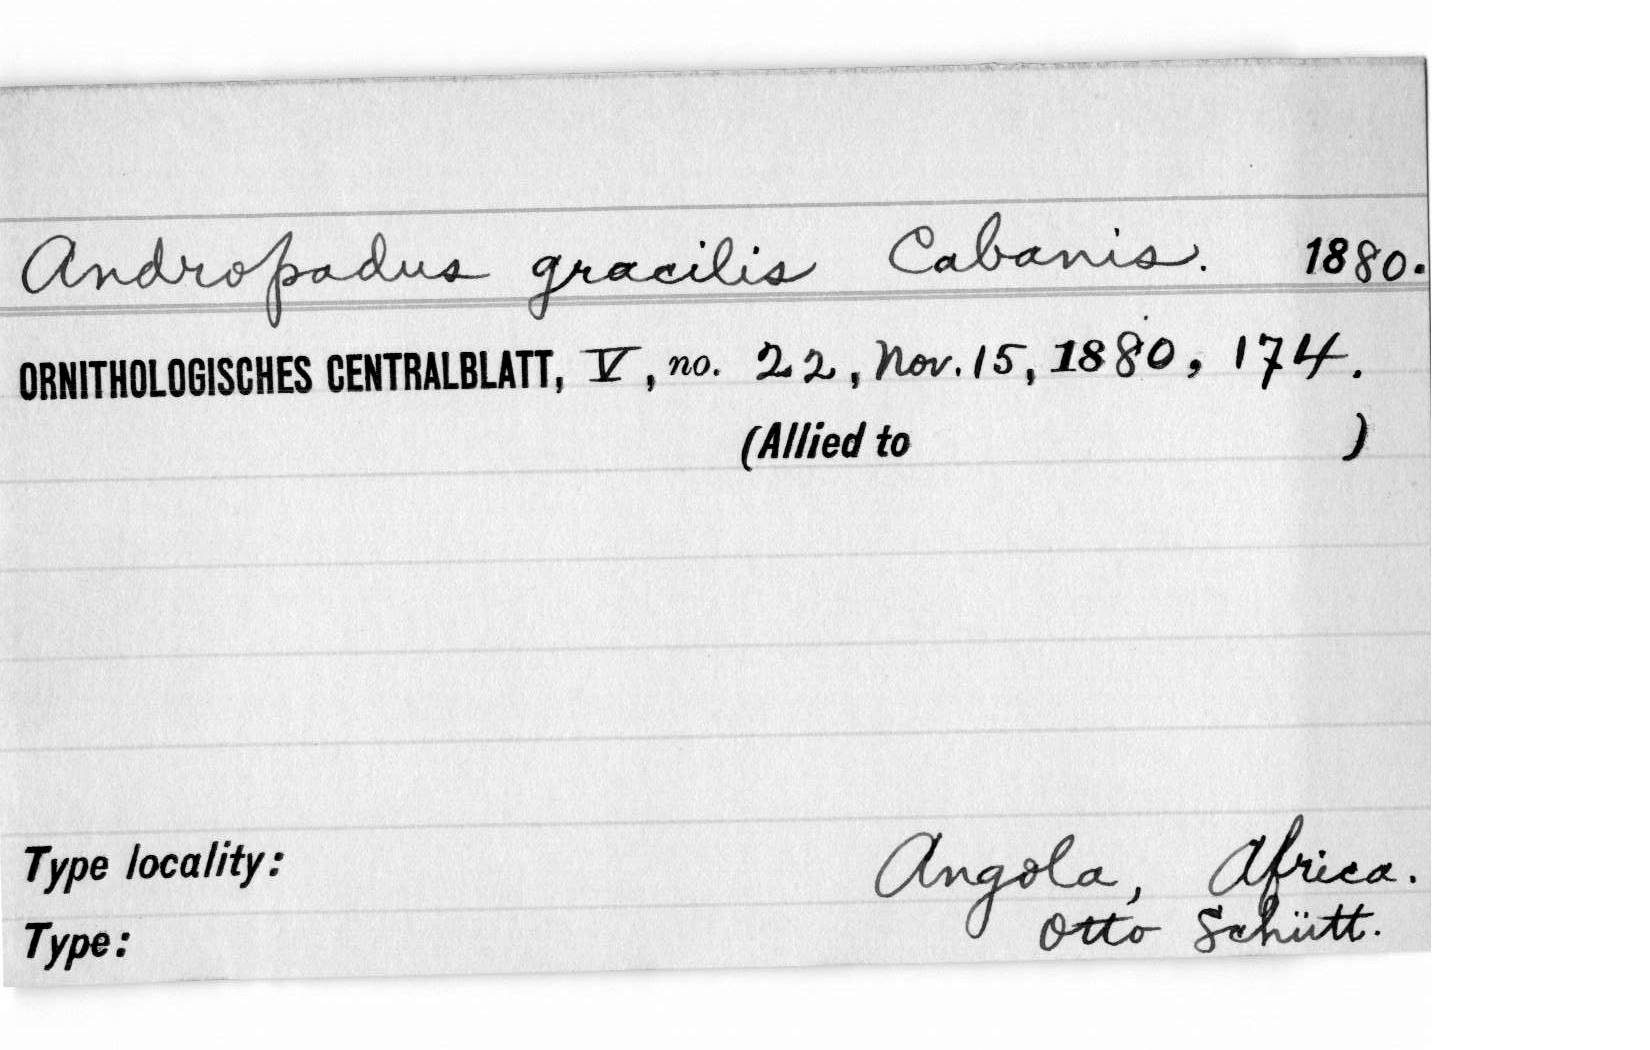 Andropadus gracilis Cabanis. 1880.
ORNITHOLOGISCHES CENTRALBLATT, V, no. 22, Nov. 15, 1880, 174.
(Allied to )
Type locality: Angola, Africa.
Type: Otto Schütt.